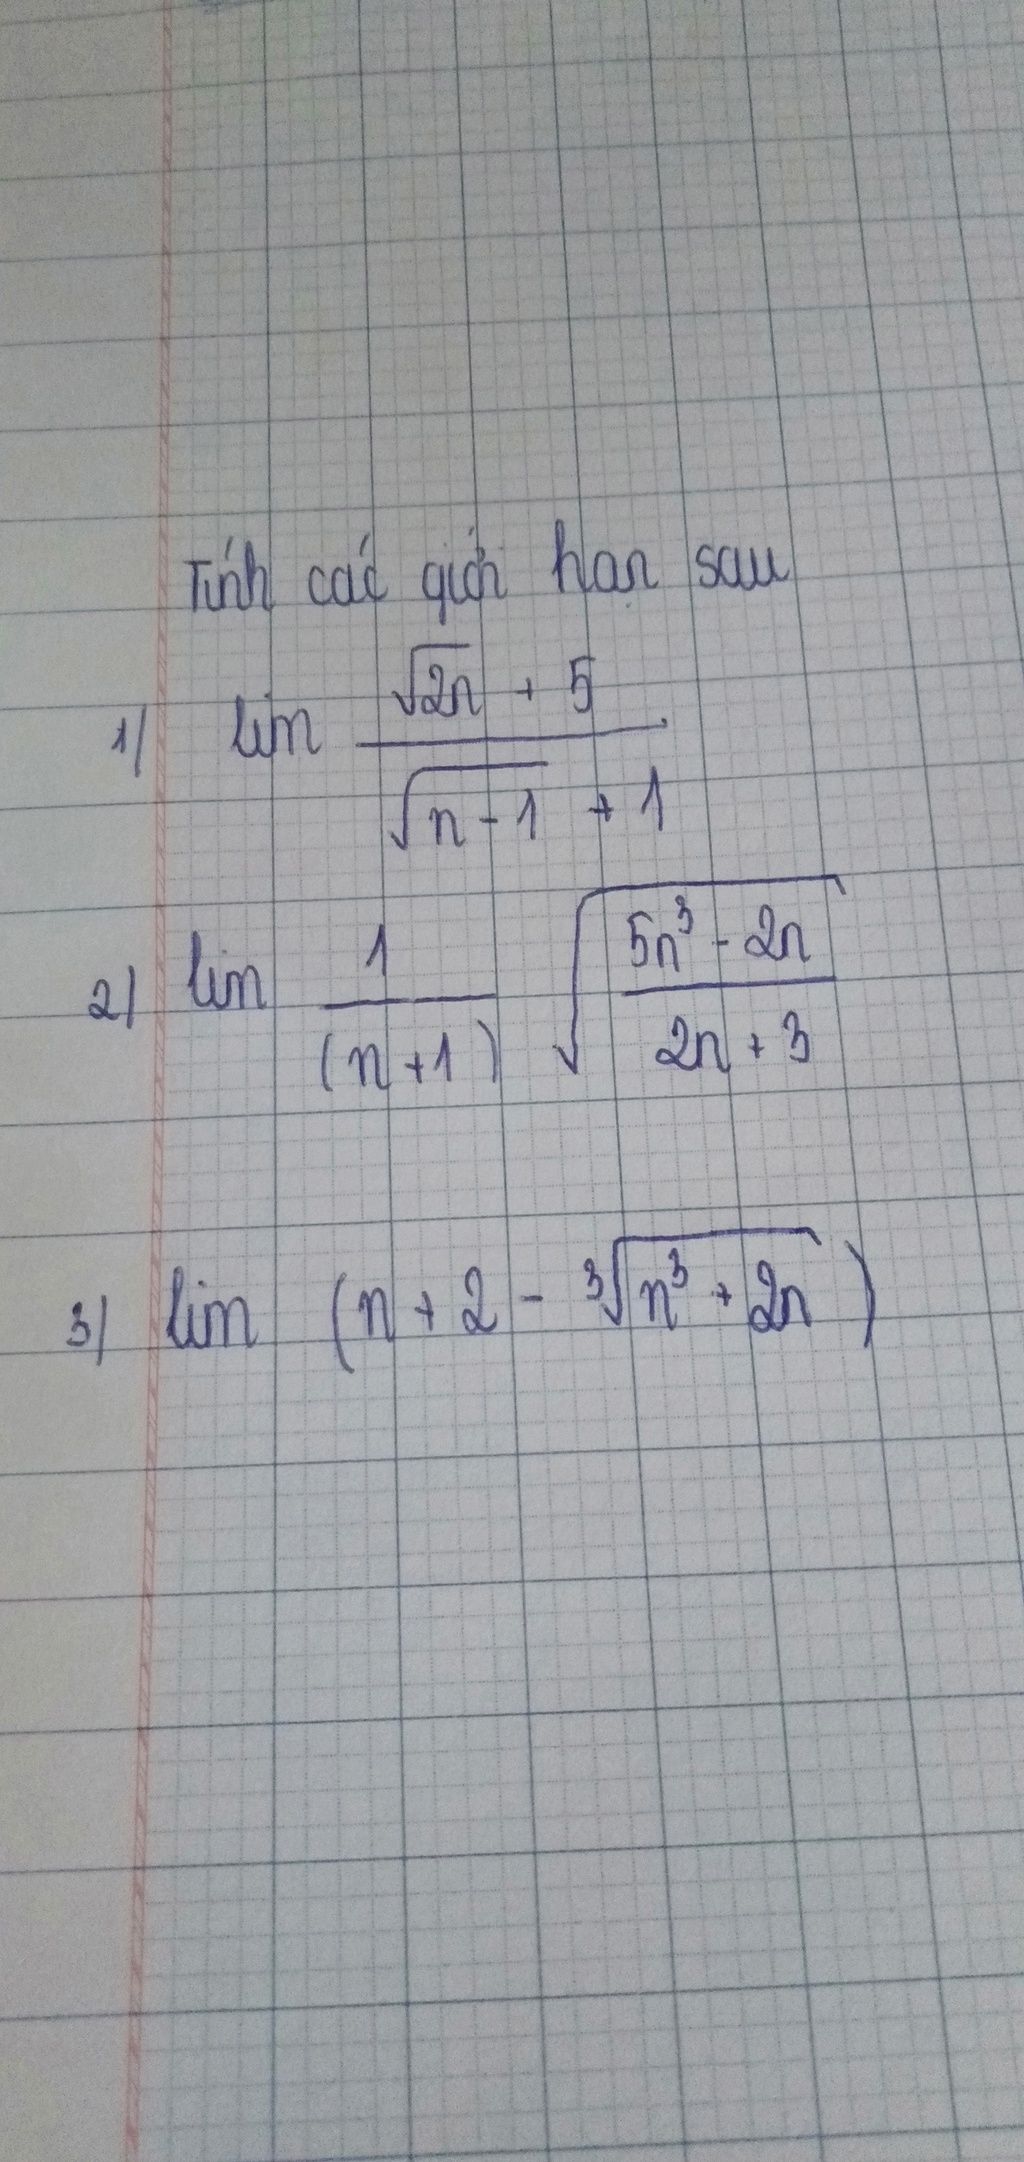 Tính các giới hạn sau
1) lim \frac{\sqrt{2n} + 5}{\sqrt{n-1} + 1}
2) lim \frac{1}{(n+1)} \sqrt{\frac{5n^3 - 2n}{2n+3}}
3) lim (n+2 - \sqrt[3]{n^3 + 2n})